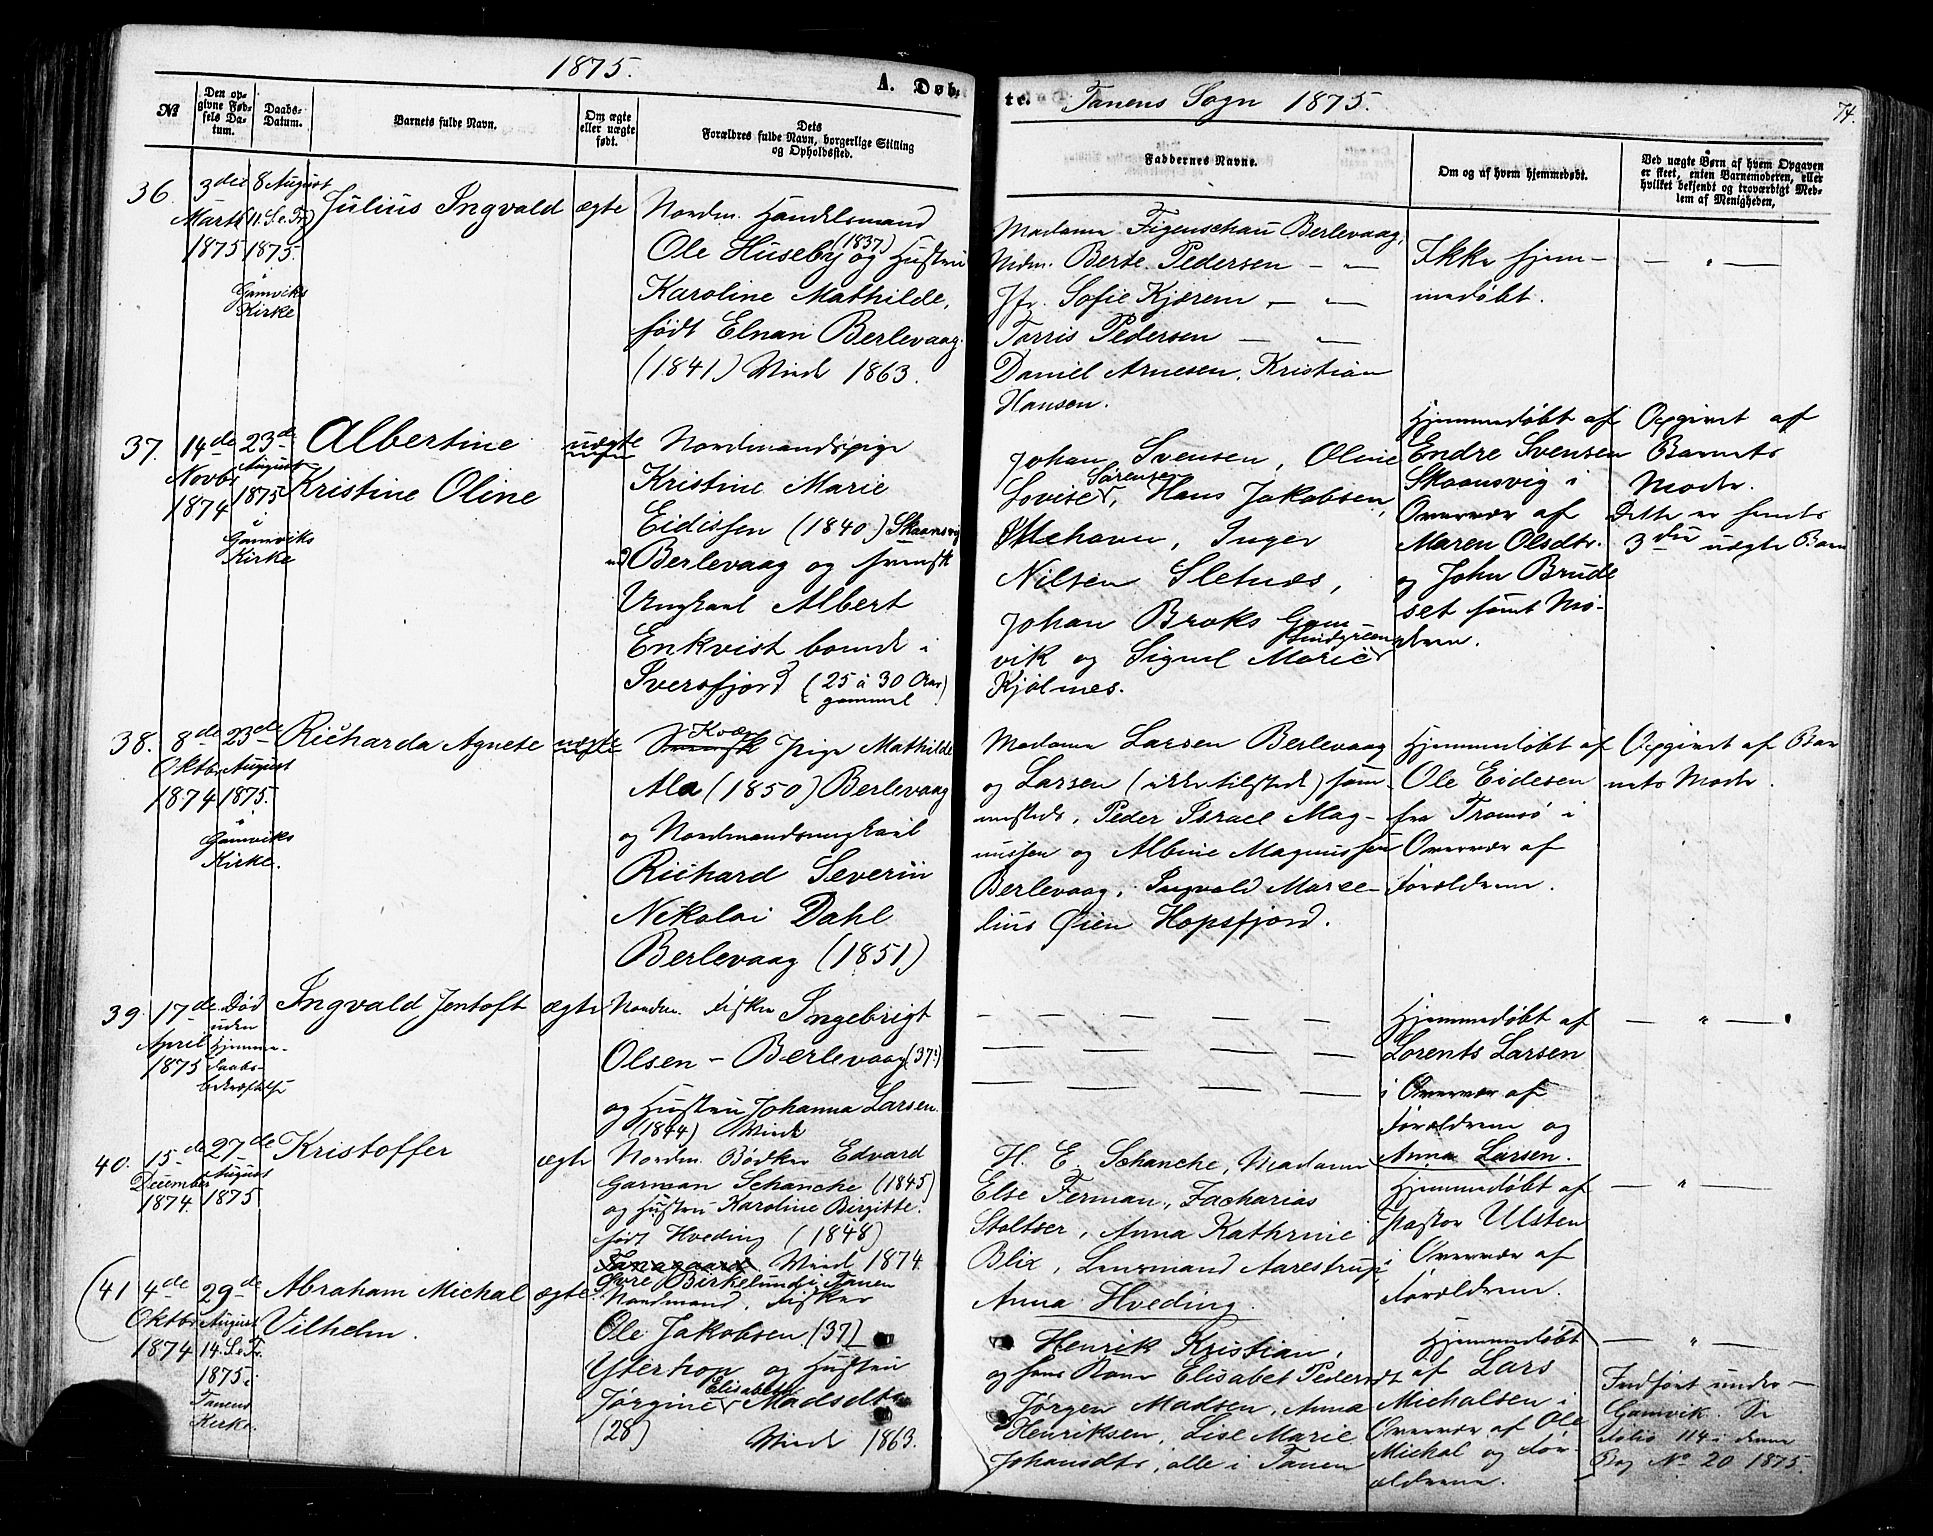 1875.
A. Døb-
№
Den op-
givne Fød-
sels Da-
tum.
Daabs-
Datum.
Barnets fulde Navn.
Om ægte
eller uægte
født.
Dets
Forældres fulde Navn, borgerlige Stilling
og Opholdssted.
36.
3die
Marts
1875
8 August
11. S. e. Tr.
1875.
å
Gamviks
Kirke
Julius Ingvald
ægte
Nordm. Handelsmand
Ole Huseby (1837) og Hustru
Karoline Mathilde,
født Elnan Berlevaag.
(1841) Viede 1863.
37.
14de
Novbr
1874
23de
August
1875
å
Gamviks
Kirke
Albertine
Kristine Oline
uægte
Nordmandspige
Kristine Marie
Eidissen (1840) Skaansvig
ved Berlevaag og svensk
Ungkarl Albert
Enkvist boende i
Iversfjord (25 à 30 Aar
gammel)
38.
8de
Oktbr
1874
23de
August
1875.
å
Gamviks
Kirke.
Richarda Agnete
uægte
Kvæn
Pige Mathilde
Ala (1850) Berlevaag
og Nordmandsungkarl
Richard Severin
Nikolai Dahl
Berlevaag (1851)
39.
17de
April
1875
Død
uden
Hjemme-
daabs-
bekræftelse
Ingvald Jentoft
ægte
Nordm. Fisker Ingebrigt
Olsen - Berlevaag (37)
og Hustru Johanna Larsen
(1844) Viede
40.
15de
December
1874
27de
August
1875
Kristoffer
ægte
Nordm. Bødker Edvard
Garman Schanche (1845)
og Hustru Karoline Birgitte
født Hveding (1848)
Viede 1874
Øvre Birkelund i Tanen
(41
4de
Oktbr
1874
29de
August
14. S. e. Tr.
1875 i
Tanens
Kirke.
Abraham Michal
Vilhelm.
ægte
Nordmand, Fisker
Ole Jakobsen (37)
Yterhop og Hustru
Jørgine Elisabeth Madsdtr
(28)
Viede 1863.
te. Tanens Sogn 1875.
74.
Faddernes Navne.
Om og af hvem hjemmedøbt.
Ved uægte Børn af hvem Opgaven
er skeet, enten Barnemoderen, eller
hvilket bekjendt og troværdigt Med-
lem af Menigheden,
Madame Figenschau Berlevaag,
Mdm. Berte Pedersen — " —
Jfr. Sofie Kjærem — " —
Torris Pedersen — " —
Daniel Arnesen, Kristian
Hansen.
Ikke hjem-
medøbt.
— " —
Johan Svensen, Oline
Lovise Sørensen, Hans Jakobsen,
Mehavn, Inger
Nilsen Sletnæs,
Johan Broks Gam-
vik og Signel Marie Lindgreen
Kjølnes.
Hjemmedøbt af
Endre Svensen
Skaansvig i
Overvær af
Maren Olsdtr.
og John Brude
set samt Mo-
deren.
Opgivet af
Barnets
Moder.
Dette er hendes
3die uægte Barn
Madame Larsen Berlevaag
og Larsen (ikke tilstede) sam-
mesteds, Peder Israel Mag-
nussen og Albine Magnussen
Berlevaag, Ingvald Marce-
lius Øien Hopsfjord.
Hjemmedøbt af
Ole Eidesen
fra Tromsø i
Overvær af
Forældrene.
Opgivet af Bar
nets Moder.
— — — — —
— — — — —
— — — — —
Hjemmedøbt af
Lorents Larsen
i Overvær af
Forældrene og
Anna Larsen.
— " —
H. E. Schanche, Madame
Else Ferman, Zacharias
Stoltser, Anna Kathrine
Blix, Lensmand Aarestrup
Anna Hveding.
Hjemmedøbt af
Pastor Ulsten
i Overvær af
Forældrene.
— " —
Henrik Kristian,
og hans Kone Elisabet Pedersdt
Jørgen Madsen, Anna
Henriksen, Lise Marie
Johansdtr, alle i Tanen
Hjemmedøbt
af Lars
Michalsen i
Overvær af Ole
Michal og For-
ældrene.
— " —
Indført under
Gamvik. Se
Folio 114 denne
Bog № 20 1875.